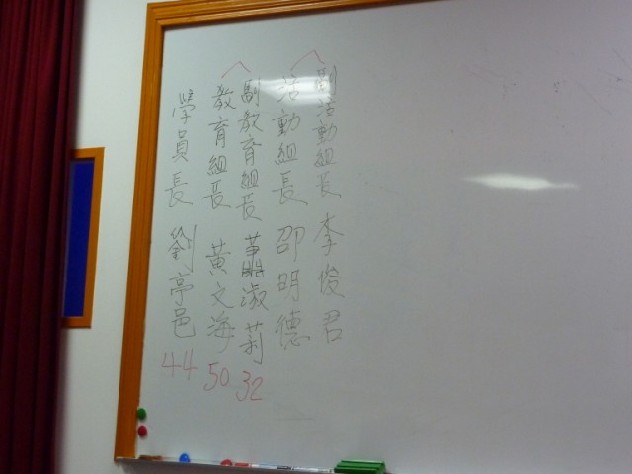 副活動組長 李俊君
活動組長 邵明德
副教育組長 蕭淑莉 32
教育組長 黃文海 50
學員長 劉亭邑 44